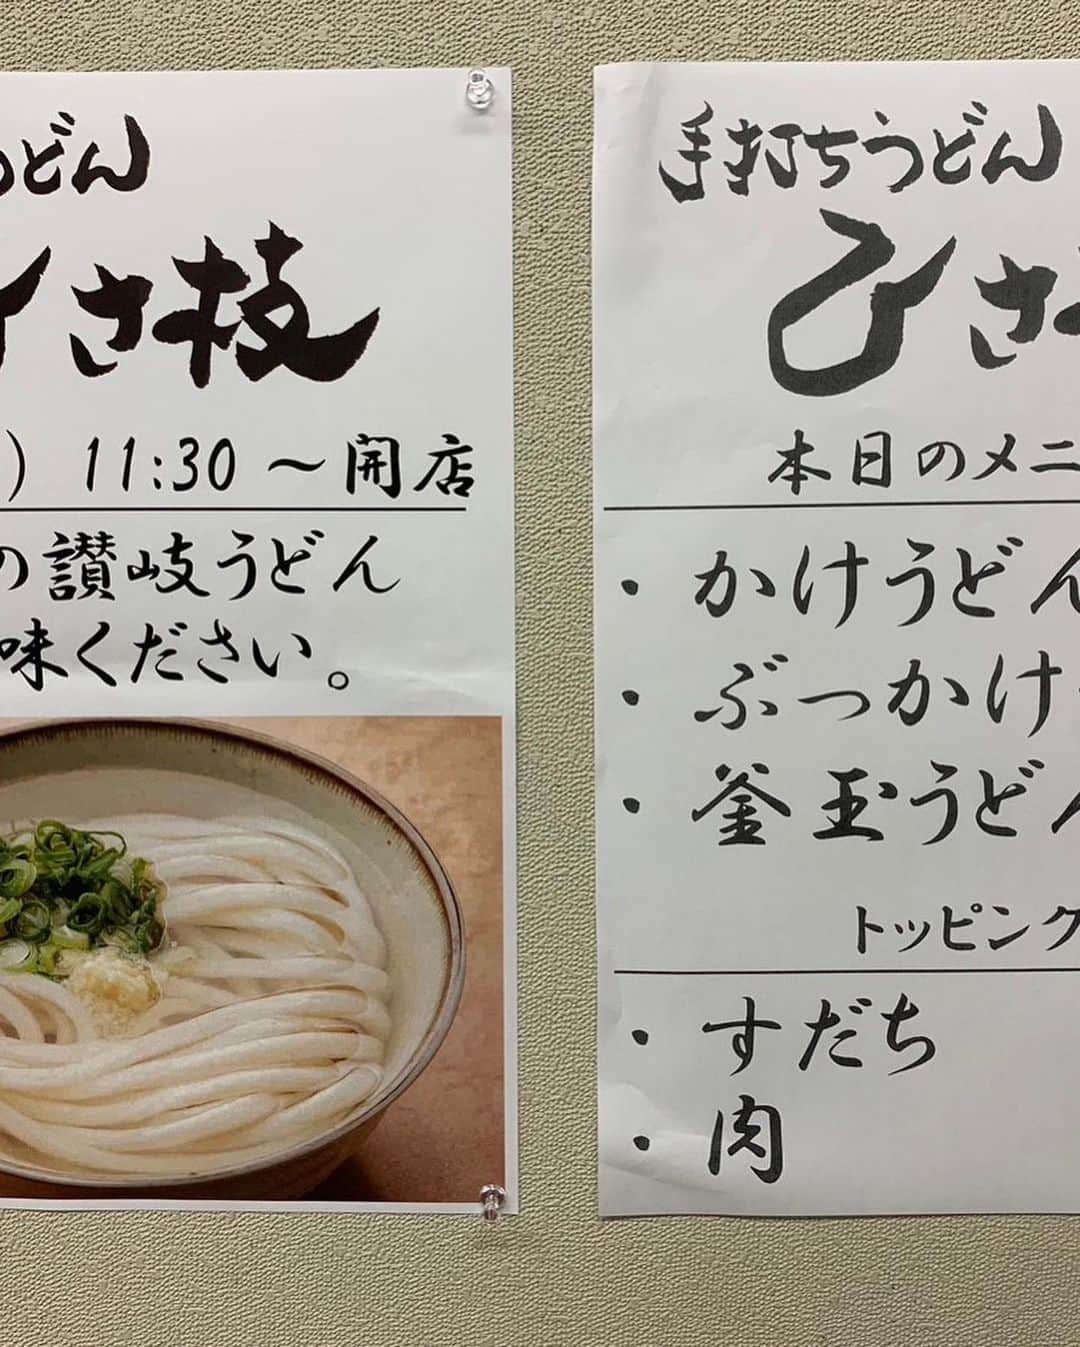 うどん
ひさ枝
) 11:30 ～開店
の讃岐うどん
味ください。
手打ちうどん
ひさ
本日のメニ
・かけうどん
・ぶっかけ
・釜玉うどん
トッピング
・すだち
・肉